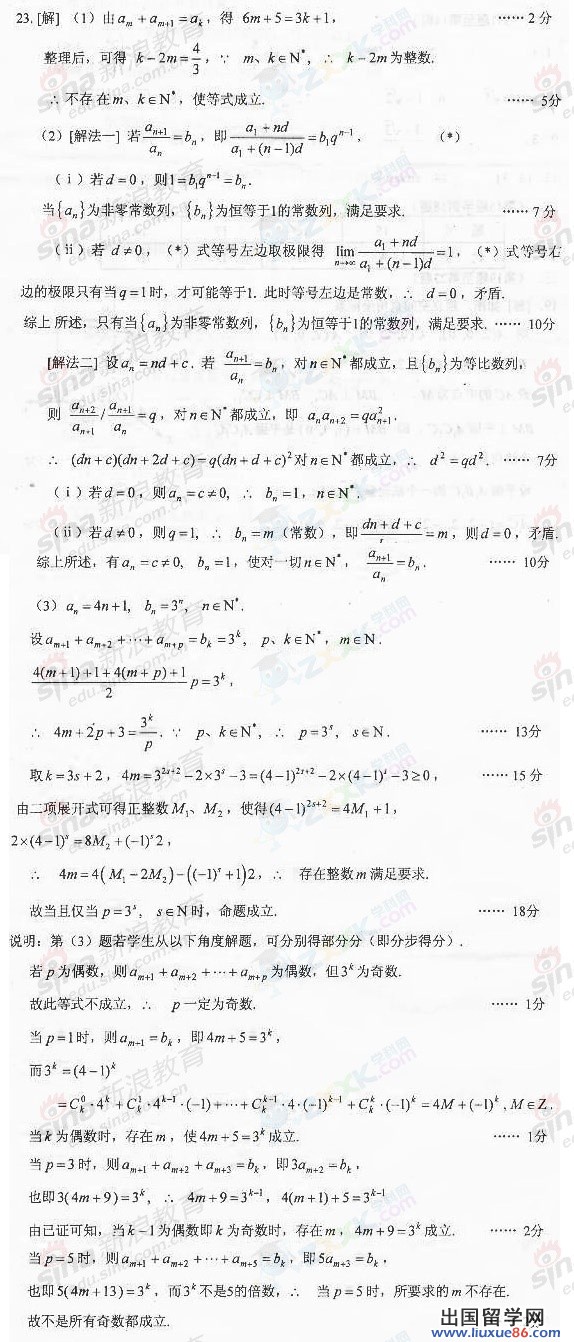 23.[解] (1) 由 a_m + a_{m+1} = a_k, 得 6m+5=3k+1, ……2 分
整理后，可得 k-2m=4/3, ∵ m、k∈N*, ∴ k-2m为整数.
∴ 不存在m、k∈N*，使等式成立. ……5分
(2) [解法一] 若 a_{n+1}/a_n = b_n，即 (a_1+nd)/(a_1+(n-1)d) = b_1q^{n-1}, (*)
(ⅰ) 若d=0，则1=b_1q^{n-1}=b_n.
当{a_n}为非零常数列，{b_n}为恒等于1的常数列，满足要求. ……7 分
(ⅱ) 若 d≠0，(*) 式等号左边取极限得 lim_{n→∞} (a_1+nd)/(a_1+(n-1)d) =1，(*) 式等号右
边的极限只有当q=1时，才可能等于1. 此时等号左边是常数，∴ d=0，矛盾.
综上所述，只有当{a_n}为非零常数列，{b_n}为恒等于1的常数列，满足要求. …… 10分
[解法二] 设a_n=nd+c. 若 a_{n+1}/a_n = b_n，对n∈N*都成立，且{b_n}为等比数列，
则 a_{n+2}/a_{n+1} / a_{n+1}/a_n = q，对n∈N*都成立，即 a_na_{n+2}=qa²_{n+1}.
∴ (dn+c)(dn+2d+c)=q(dn+d+c)²对n∈N*都成立，∴ d²=qd². …… 7分
(ⅰ) 若d=0，则a_n=c≠0, ∴ b_n=1, n∈N*.
(ⅱ) 若d≠0，则q=1, ∴ b_n=m (常数)，即 dn+d+c =m，则d=0，矛盾.
综上所述，有a_n=c≠0, b_n=1，使对一切n∈N*, a_{n+1}/a_n = b_n. …… 10分
(3) a_n=4n+1, b_n=3^n, n∈N*.
设a_{m+1}+a_{m+2}+⋯+a_{m+p}=b_k=3^k, p、k∈N*, m∈N.
(4(m+1)+1+4(m+p)+1)/2 p=3^k,
∴ 4m+2p+3=3^k/p. ∵ p、k∈N*, ∴ p=3^s, s∈N. …… 13分
取k=3s+2, 4m=3^{2s+2}-2×3^s-3=(4-1)^{2s+2}-2×(4-1)^s-3≥0, ……15 分
由二项展开式可得正整数M_1、M_2，使得(4-1)^{2s+2}=4M_1+1,
2×(4-1)^s=8M_2+(-1)^s2,
∴ 4m=4(M_1-2M_2)-((-1)^s+1)2, ∴ 存在整数m满足要求.
故当且仅当p=3^s, s∈N时，命题成立. …… 18分
说明：第 (3) 题若学生从以下角度解题，可分别得部分分 (即分步得分).
若p为偶数，则a_{m+1}+a_{m+2}+⋯+a_{m+p}为偶数，但3^k为奇数.
故此等式不成立，∴ p一定为奇数. …… 1分
当p=1时，则a_{m+1}=b_k，即4m+5=3^k,
而3^k=(4-1)^k
=C_k^0·4^k+C_k^1·4^{k-1}·(-1)+⋯+C_k^{k-1}·4·(-1)^{k-1}+C_k^k·(-1)^k=4M+(-1)^k, M∈Z.
当k为偶数时，存在m，使4m+5=3^k成立. …… 1分
当p=3时，则a_{m+1}+a_{m+2}+a_{m+3}=b_k，即3a_{m+2}=b_k,
也即3(4m+9)=3^k, ∴ 4m+9=3^{k-1}, 4(m+1)+5=3^{k-1}
由已证可知，当k-1为偶数即k为奇数时，存在m, 4m+9=3^k成立. …… 2分
当p=5时，则a_{m+1}+a_{m+2}+⋯+a_{m+5}=b_k，即5a_{m+3}=b_k,
也即5(4m+13)=3^k，而3^k不是5的倍数，∴ 当p=5时，所要求的m不存在.
故不是所有奇数都成立.
出国留学网
www.liuxue86.com